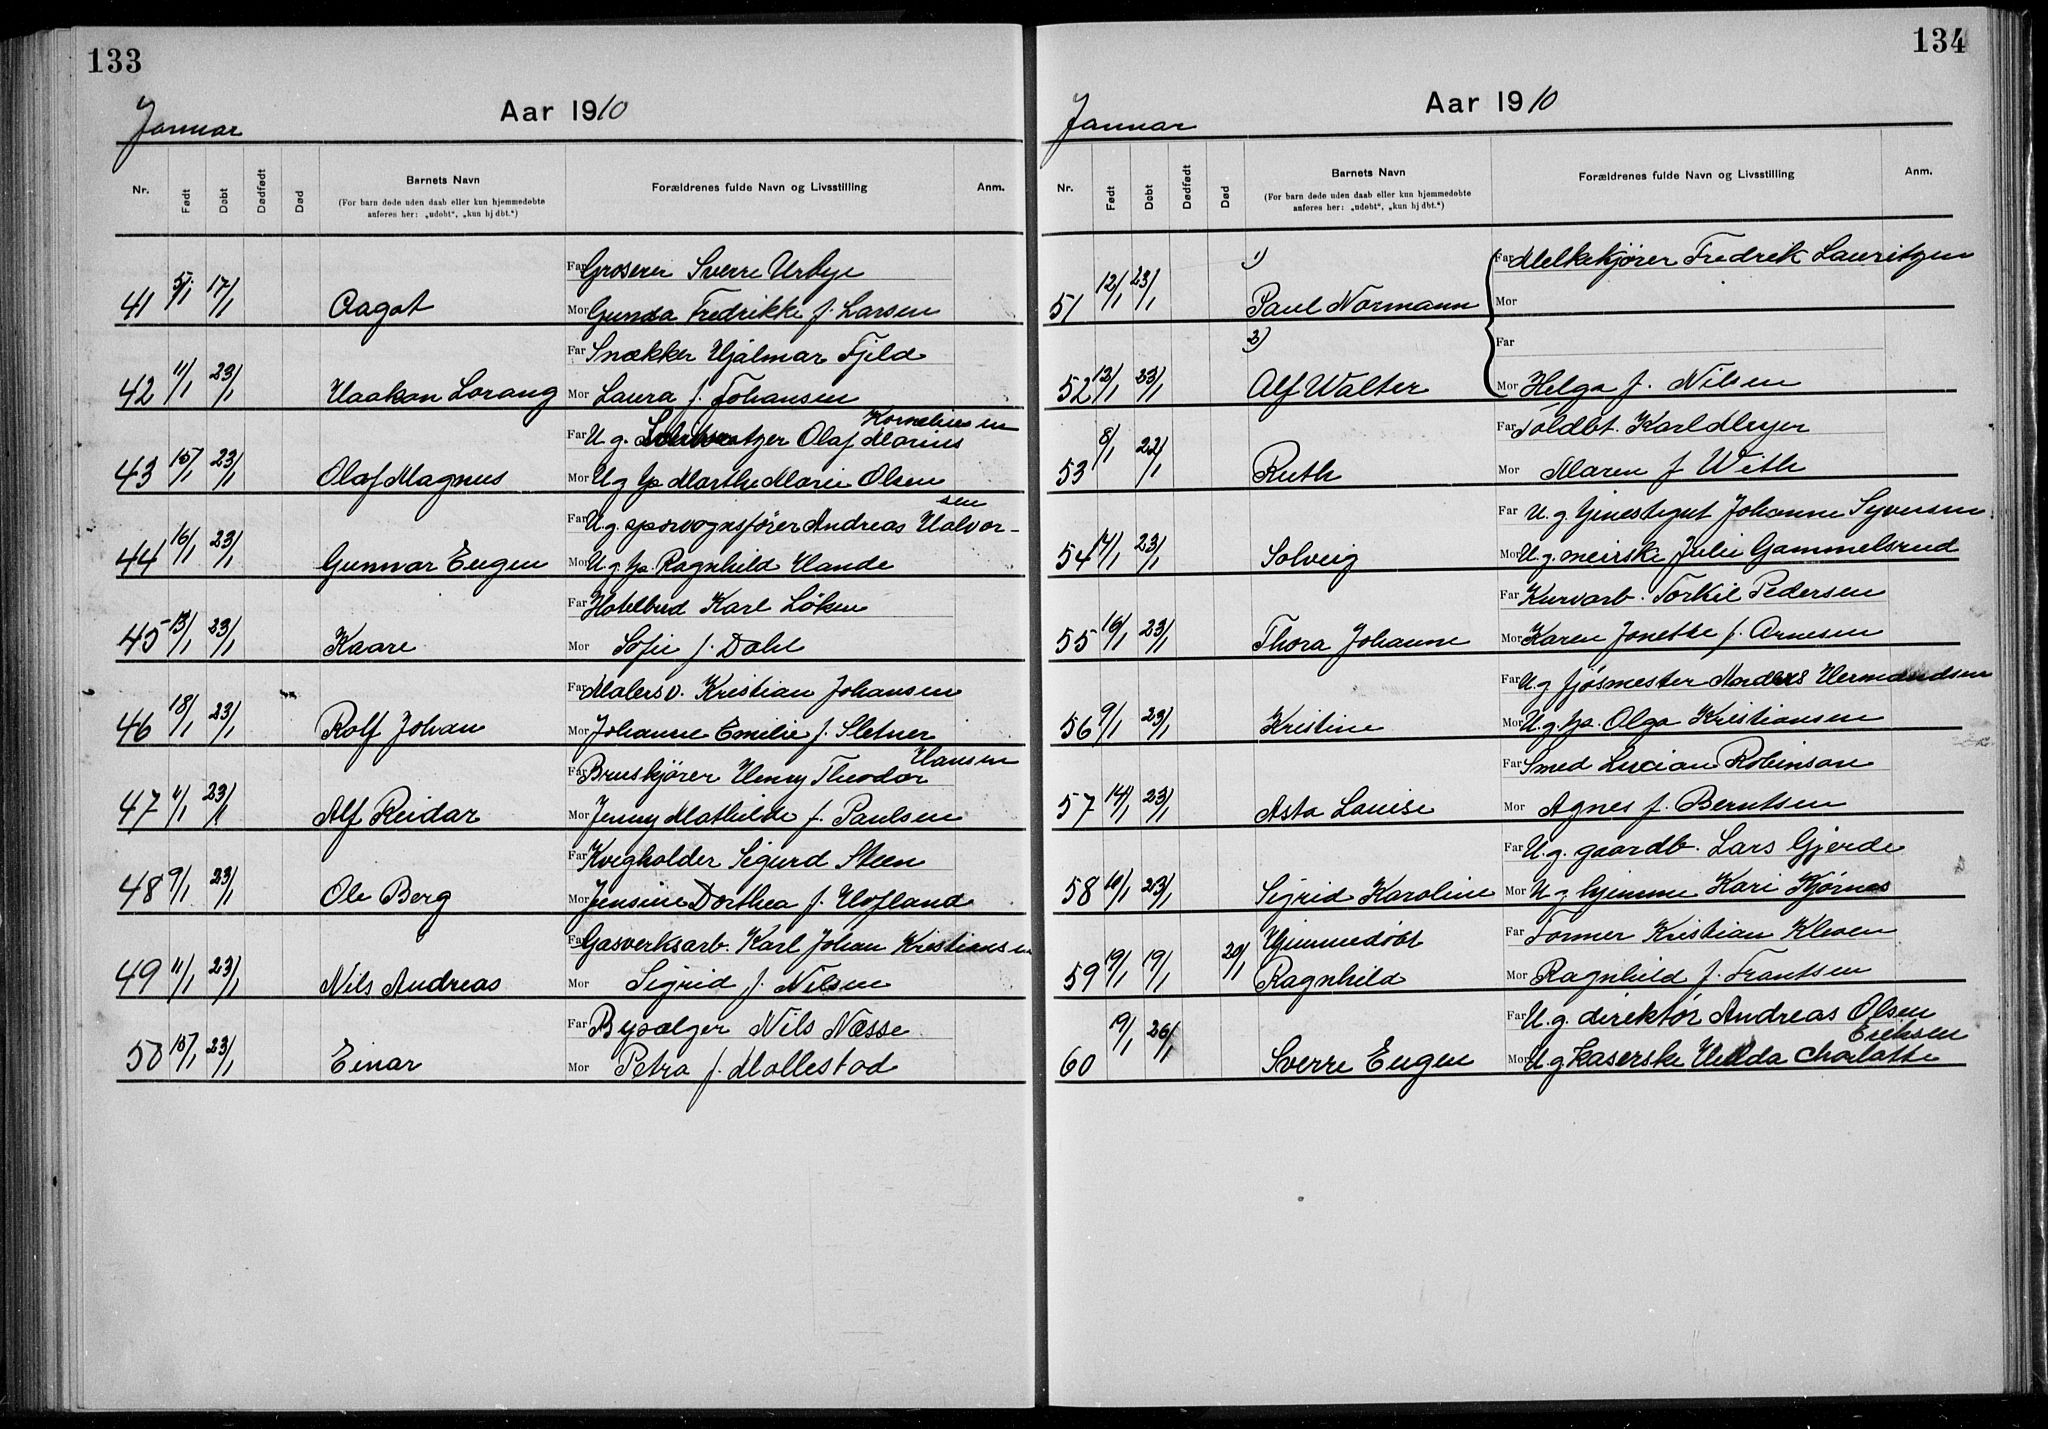 133
Januar
Aar 1910
Nr. Født Døbt Dødfødt Død Barnets Navn Forældrenes fulde Navn og Livsstilling Anm.
(For barn døde uden daab eller kun hjemmedøbte
anføres her: „udøbt“, „kun hj dbt.“)
Far Groserer Sverre Urbye
41 5/1 17/1 Aagot Mor Gunda Fredrikke f. Larsen
Far Snækker Hjalmar Fjeld
42 11/1 23/1 Haakon Lorang Mor Laura f. Johansen
Korneliussen
Far U. g. Olaf Marius
43 15/1 23/1 Olaf Magnus Mor U g tp Marthe Marie Olsen
sen
Far U. g. sporvognsfører Andreas Halvor-
44 16/1 23/1 Gunnar Eugen Mor U. g. tp. Ragnhild Hande
Far Hotelbud Karl Løken
45 13/1 23/1 Kaare Mor Sofie f. Dahl
Far Malersv. Kristian Johansen
46 18/1 23/1 Rolf Johan Mor Johanne Emilie f. Sletner
Hansen
Far Bruskjører Henry Theodor
47 11/1 23/1 Alf Reidar Mor Jenny Mathilde f. Paulsen
Far Kvegholder Sigurd Steen
48 9/1 23/1 Ole Berg Mor Jensine Dorthea f. Hofland
Far Gasverksarb. Karl Johan Kristiansen
49 11/1 23/1 Nils Andreas Mor Sigrid f. Nilsen
Far Bysælger Nils Næsse
50 15/1 23/1 Einar Mor Petra f. Mollestad
134
Januar
Aar 1910
Nr. Født Døbt Dødfødt Død Barnets Navn Forældrenes fulde Navn og Livsstilling Anm.
(For barn døde uden daab eller kun hjemmedøbte
anføres her: „udøbt“, „kun hj dbt.“)
1) Far Melkekjører Fredrik Lauritzen
51 12/1 23/1 Paul Normann Mor
2) Far
52 12/1 23/1 Alf Walter Mor Helga f. Nilsen
Far Toldbt. Karl Meyer
53 8/1 22/1 Ruth Mor Maren f With
Far U. g tjenestegut Johanne Syversen
54 14/1 23/1 Solveig Mor U. g. meierske Julie Gammelsrud
Far Kurvarb. Torkil Pedersen
55 16/1 23/1 Thora Johanne Mor Karen Jonette f. Arnesen
Far U. g fjøsmester Anders Hermandsen
56 9/1 23/1 Kristine Mor U. g. tp. Olga Kristiansen
Far Smed Lucian Robinson
57 14/1 23/1 Asta Louise Mor Agnes f. Berntsen
Far U. g. gaardb. Lars Gjerde
58 11/1 23/1 Sigrid Karoline Mor U g hjemme Kari Kjørnes
Hjemmedøbt Far Former Kristian Kleven
59 19/1 19/1 20/1 Ragnhild Mor Ragnhild f. Frantsen
Far U. g. direktør Andreas Olsen
Eriksen
60 19/1 26/1 Sverre Eugen Mor U. g kaserske Hilda Charlotte